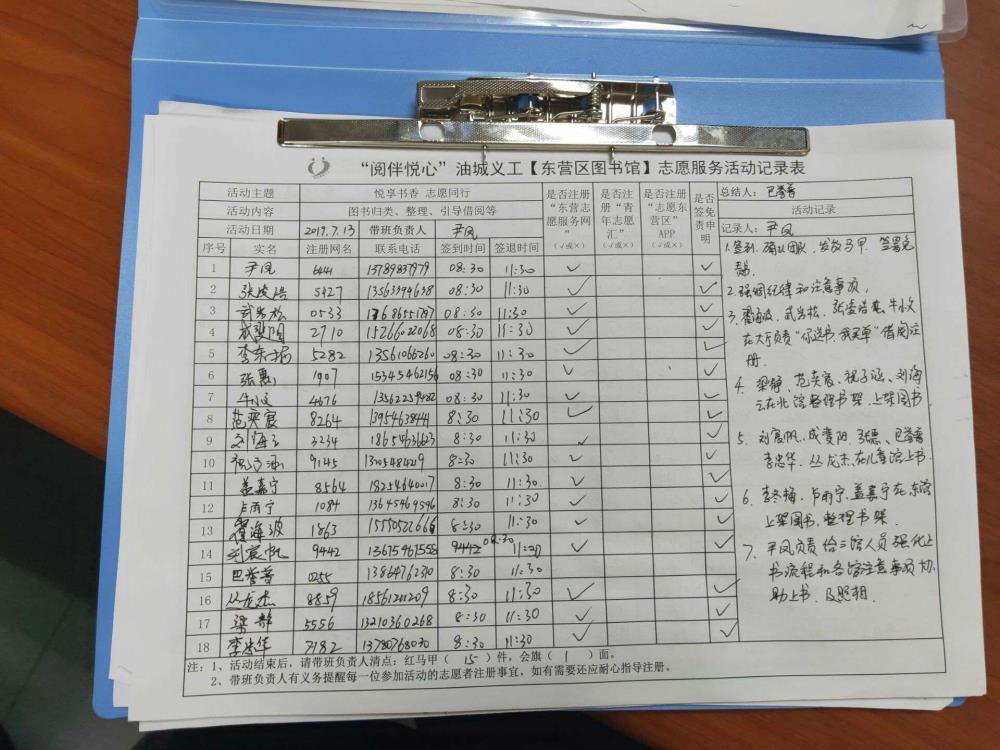 “阅伴悦心”油城义工【东营区图书馆】志愿服务活动记录表
活动主题 悦享书香 志愿同行 是否注册“东营志愿服务网”（√或×） 是否注册“青年志愿汇”（√或×） 是否注册“志愿东营区”APP（√或×） 是否签免责申明 总结人：巴誉番
活动内容 图书归类、整理、引导借阅等 活动记录
活动日期 2019.7.13 带班负责人 尹凤 记录人：尹凤
序号 实名 注册网名 联系电话 签到时间 签退时间
1 尹凤 13789837979 08:30 11:30 ✓ ✓
2 5427 13563394638 08:30 11:30 ✓ ✓
3 武岩松 0533 08:30 11:30 ✓ ✓
4 2710 15266022068 08:30 11:30 ✓ ✓
5 李冬梅 5282 13561066260 08:30 11:30 ✓ ✓
6 张惠 1907 15345462156 08:30 11:30 ✓ ✓
7 4676 13562259422 08:30 11:30 ✓ ✓
8 范奕宸 8264 13954638444 8:30 11:30 ✓ ✓
9 刘海云 3234 18654631623 8:30 11:30 ✓ ✓
10 祝子涵 9145 13205484219 8:30 11:30 ✓ ✓
11 盖嘉宁 8564 18254640017 8:30 11:30 ✓ ✓
12 卢雨宁 1084 13645469596 8:30 11:30 ✓ ✓
13 翟海波 1863 15550522666 8:30 11:30 ✓ ✓
14 刘宸帆 9442 13675467558 9442 08:30 11:30 ✓ ✓
15 巴誉番 0255 1386476230 8:30 11:30
16 丛龙杰 8859 18561211209 8:30 11:30 ✓ ✓
17 梁静 5556 13210360268 8:30 11:30 ✓ ✓
18 李忠华 7182 13780768030 8:30 11:30 ✓ ✓
1.签到、确认团队、发放马甲、签署免责.
2.强调纪律和注意事项,
3.翟海波、武岩松、张凌浩、牛小文
在大厅负责“你选书、我买单”借阅注
册.
4.梁静、范奕宸、祝子涵、刘海
云在北馆整理书架、上架图书.
5.刘宸帆、成奕阳、张惠、巴誉番
李忠华、丛龙杰、在儿童馆上书.
6.李冬梅、卢雨宁、盖嘉宁在东馆
上架图书、整理书架.
7.尹凤负责给三馆人员强化上
书流程和各馆注意事项、协
助上书、及照相.
注：1、活动结束后，请带班负责人清点：红马甲（ 15 ）件，会旗（ 1 ）面。
2、带班负责人有义务提醒每一位参加活动的志愿者注册事宜，如有需要还应耐心指导注册。